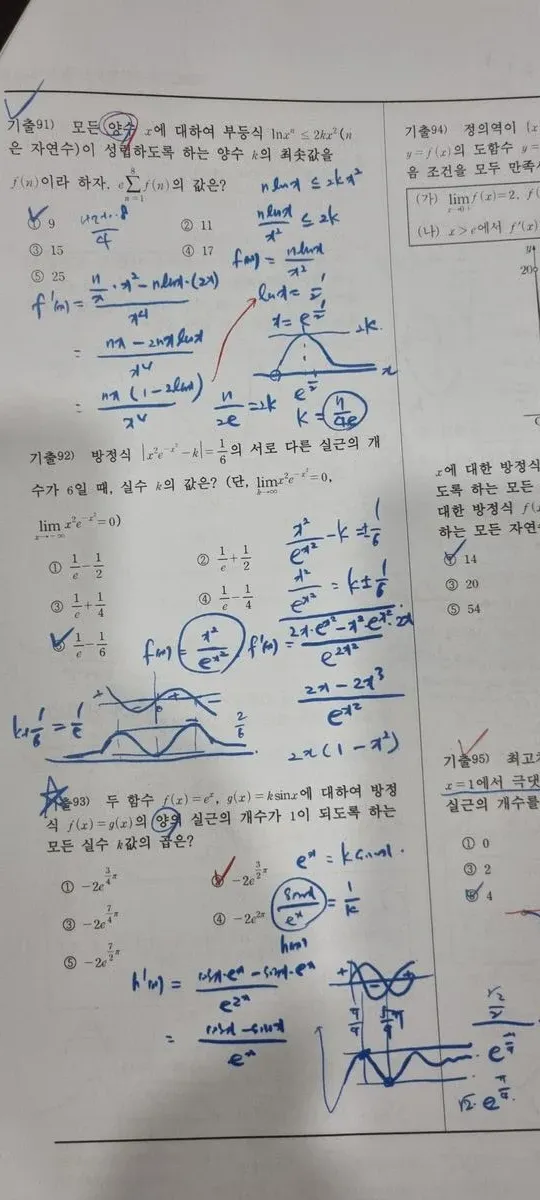 기출91) 모든 양수 x에 대하여 부등식 lnxⁿ ≤ 2kx² (n
은 자연수)이 성립하도록 하는 양수 k의 최솟값을
f(n)이라 하자. e∑ₙ₌₁⁸ f(n)의 값은?
① 9 ② 11
③ 15 ④ 17
⑤ 25
1+2+…8/4
n lnx ≤ 2kx²
n lnx/x² ≤ 2k
f(x) = n lnx/x²
f'(x) = (n/x · x² - n lnx · (2x))/x⁴
= (nx - 2nx lnx)/x⁴
= nx(1 - 2lnx)/x⁴
lnx = 1/2
x = e^(1/2)
2k
x
e^(1/2)
n/2e = 2k
k = n/4e
기출92) 방정식 |x²e^(-x²) - k| = 1/6의 서로 다른 실근의 개
수가 6일 때, 실수 k의 값은? (단, lim x²e^(-x²) = 0,
lim(x→-∞) x²e^(-x²) = 0)
① 1/e - 1/2 ② 1/e + 1/2
③ 1/e + 1/4 ④ 1/e - 1/4
⑤ 1/e - 1/6
x²/e^(x²) - k = ±1/6
x²/e^(x²) = k ± 1/6
f(x) = x²/e^(x²)
f'(x) = (2x·e^(x²) - x²e^(x²)·2x)/e^(2x²)
(2x - 2x³)/e^(x²)
2x(1 - x²)
k+1/6 = 1/e
2/6
출93) 두 함수 f(x) = eˣ, g(x) = ksinx에 대하여 방정
식 f(x) = g(x)의 양의 실근의 개수가 1이 되도록 하는
모든 실수 k값의 곱은?
① -2e^(3/4 π) ② -2e^(3/2 π)
③ -2e^(7/4 π) ④ -2e^(2π)
⑤ -2e^(7/2 π)
eˣ = k sinx.
sinx/eˣ = 1/k
h(x)
h'(x) = (cosx·eˣ - sinx·eˣ)/e^(2x)
= (cosx - sinx)/eˣ
π/4 5/4π
√2/2
e^(π/4)
√2·e^(π/4).
기출94) 정의역이 {x
y = f(x)의 도함수 y =
음 조건을 모두 만족
(가) lim f(x) = 2, f(
(나) x > e에서 f'(x)
y
20
x에 대한 방정식
도록 하는 모든
대한 방정식 f(
하는 모든 자연수
① 14
③ 20
⑤ 54
기출95) 최고차
x = 1에서 극댓
실근의 개수를
① 0
③ 2
⑤ 4